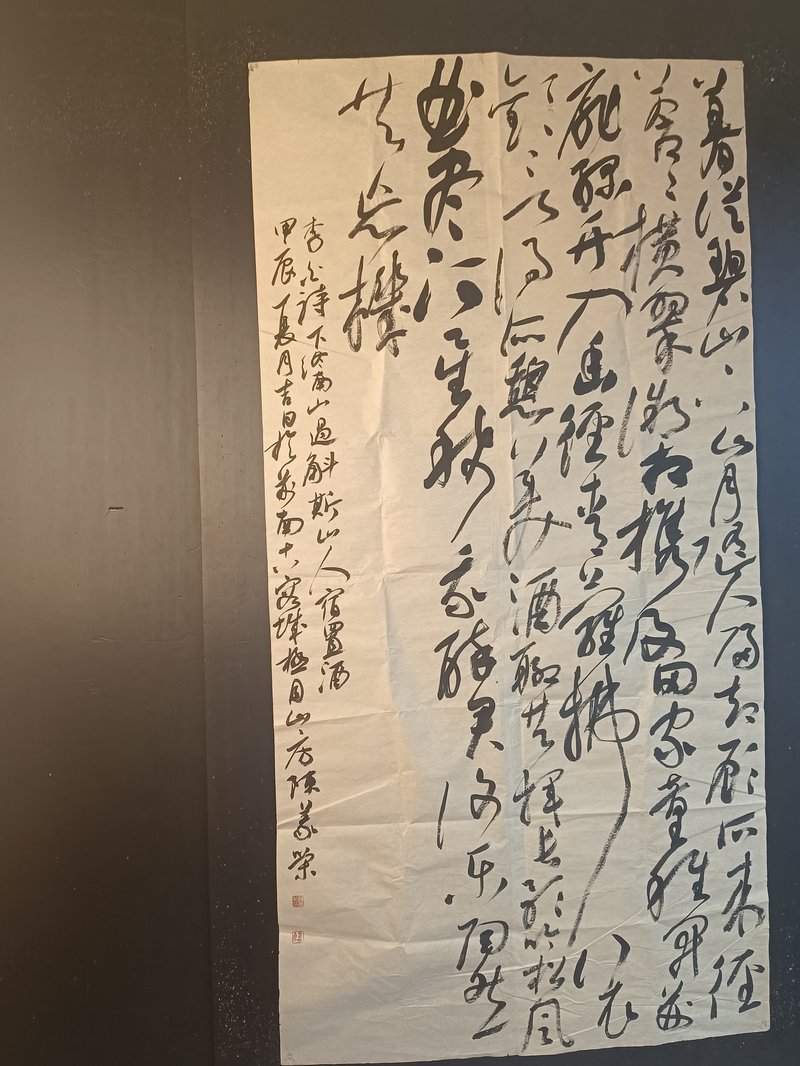 暮從碧山下山月隨人歸却顧所來徑
蒼々橫翠微相攜及田家童稚開荊
扉綠竹入幽徑青蘿拂行衣
歡言得所憩美酒聊共揮長歌吟松風
曲尽河星稀我醉君復樂陶然
共忘機
李白詩下終南山過斛斯山人宿置酒
甲辰夏月吉日於南十八城極目山房陳義榮